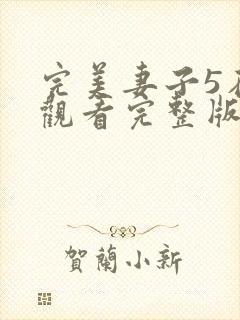 完美妻子5在
觀看完整版
賀蘭小新